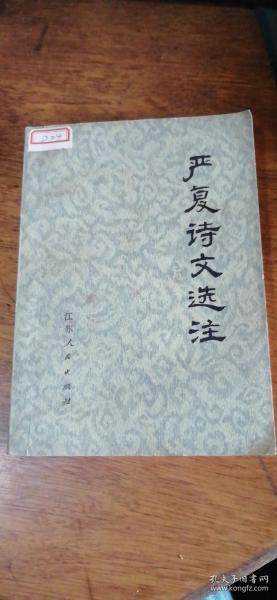 严复诗文选注
江苏人民出版社
孔夫子旧书网